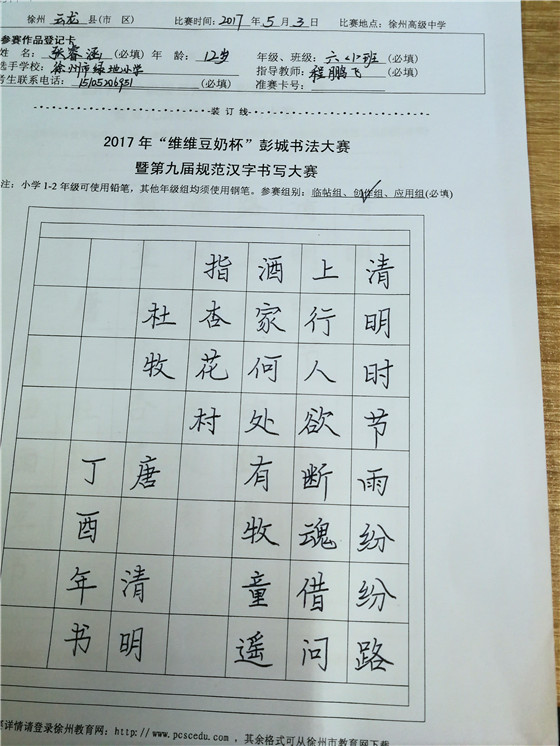 徐州 云龙 县(市 区) 比赛时间:2017 年 5 月 3 日 比赛地点:徐州高级中学
参赛作品登记卡
名:张睿涵 (必填) 年 龄:12岁 年级、班级: (必填)
选手学校:徐州市绿地小学 (必填) 指导教师:程鹏飞 (必填)
考生联系电话: (必填) 准赛卡号:
装 订 线
2017 年“维维豆奶杯”彭城书法大赛
暨第九届规范汉字书写大赛
注:小学 1-2 年级可使用铅笔,其他年级组均须使用钢笔。参赛组别:临帖组、创作组、应用组(必填)
清明时节雨纷纷路
上行人欲断魂借问
酒家何处有牧童遥
指杏花村
杜牧 唐 清明
丁酉年书
详情请登录徐州教育网:http://www.pcscedu.com ,其余格式可从徐州市教育网下载